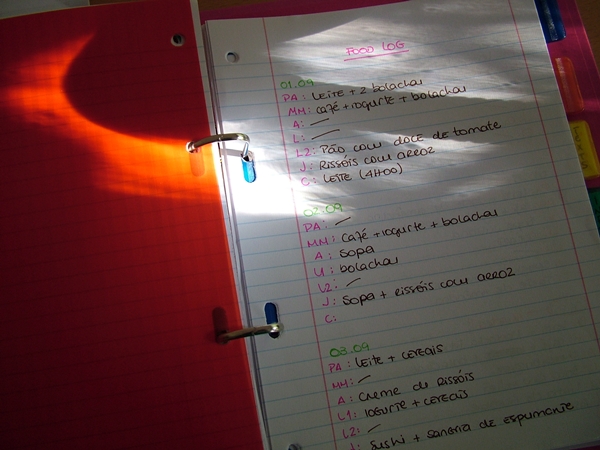 FOOD LOG
01.09
PA: LEITE + 2 bolachas
MM: café + iogurte + bolachas
A: —
L: —
L2: Pão com doce de tomate
J: Rissóis com arroz
C: LEITE (4H00)
02.09
PA: —
MM: café + iogurte + bolachas
A: Sopa
L1: bolachas
L2: —
J: Sopa + Rissóis com arroz
C:
03.09
PA: LEITE + CEREAIS
MM: —
A: Creme de Rissóis
L1: IOGURTE + CEREAIS
L2: —
J: Sushi + Sangria de espumante